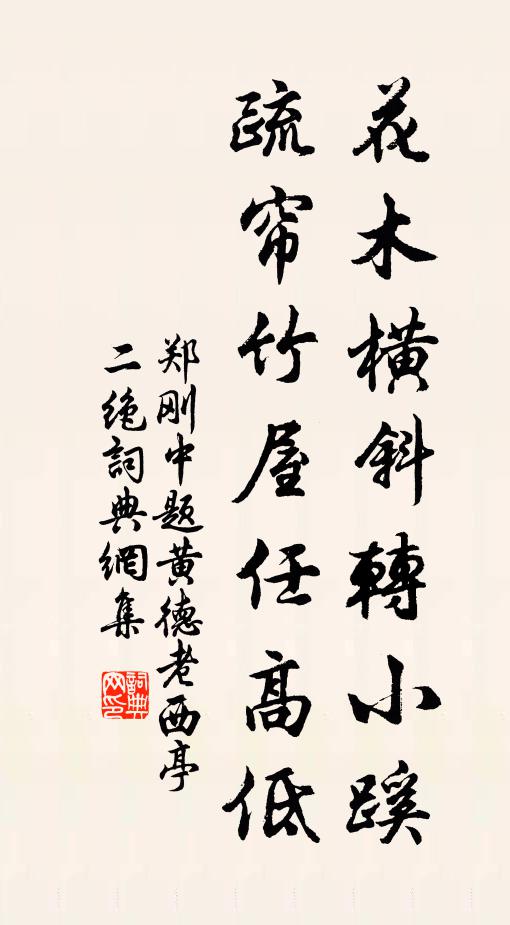 花木橫斜轉小蹊
疏帘竹屋任高低
郑刚中题黄德老西亭
二绝詞典網集
詞典网印